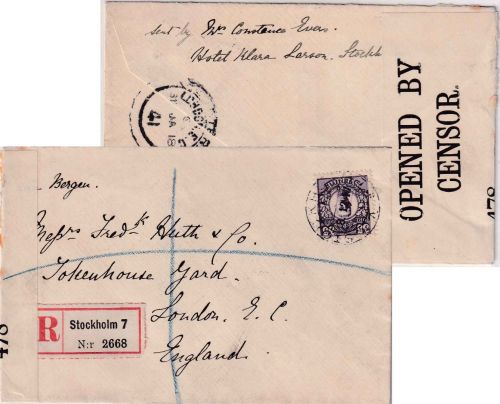 sent by Mrs Constance Evers.
Hotel Klara Larson. Stockh
LONDON
41
31 JA 18
OPENED BY
CENSOR.
478
Bergen.
Messrs Fredk Huth & Co.
Tokenhouse Yard.
London. E. C.
England.
R
Stockholm 7
N:r 2668
478